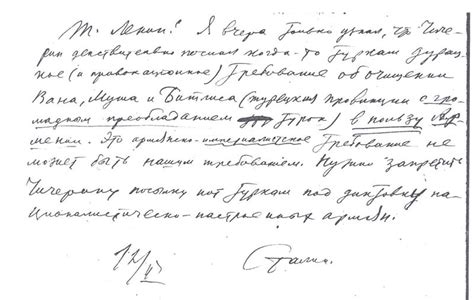 Т. Ленин! Я вчера только узнал, что Чиче-
рин действительно послал когда-то туркам дурац-
кое (и провокационное) требование об очищении
Вана, Муша и Битлиса (турецких провинции с гро-
мадным преобладанием турок) в пользу Ар-
мении. Это армянско-империалистское требование не
может быть нашим требованием. Нужно запретить
Чичерину посылку нот туркам под диктовку на-
ционалистически-настроенных армян.
12/II Сталин.